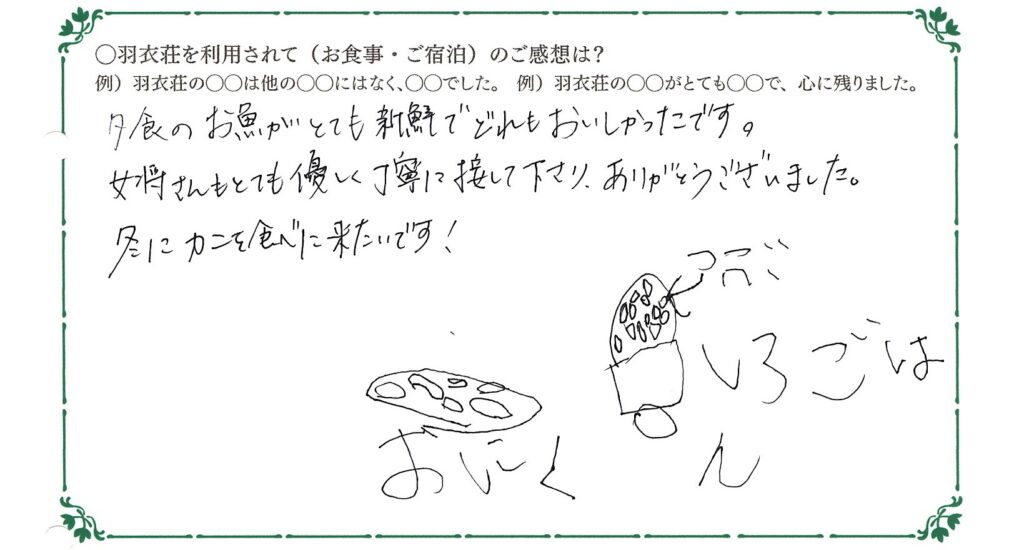 ○羽衣荘を利用されて（お食事・ご宿泊）のご感想は？
例）羽衣荘の○○は他の○○にはなく、○○でした。 例）羽衣荘の○○がとても○○で、心に残りました。
夕食の お魚がとても新鮮でどれもおいしかったです。
女将さんもとても優しく丁寧に接して下さり、ありがとうございました。
冬に カニを食べに来たいです！
いろごはん
おにく